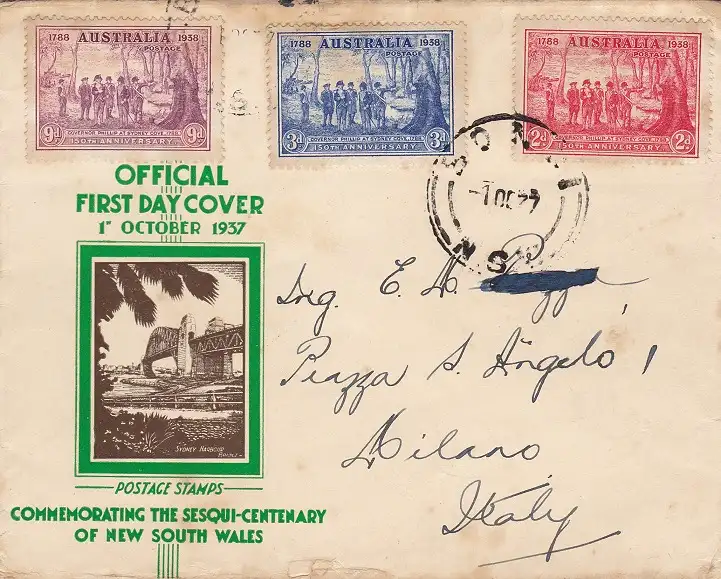 1788 AUSTRALIA 1938
POSTAGE
9d GOVERNOR PHILLIP AT SYDNEY COVE 1788 9d
150TH ANNIVERSARY
1788 AUSTRALIA 1938
POSTAGE
3d GOVERNOR PHILLIP AT SYDNEY COVE 1788 3d
150TH ANNIVERSARY
1788 AUSTRALIA 1938
POSTAGE
2d GOVERNOR PHILLIP AT SYDNEY COVE 1788 2d
150TH ANNIVERSARY
-1 OC 37
N.S.W
OFFICIAL
FIRST DAY COVER
1ST OCTOBER 1937
SYDNEY HARBOUR
BRIDGE
POSTAGE STAMPS
COMMEMORATING THE SESQUI-CENTENARY
OF NEW SOUTH WALES
Ing. E. A.
Piazza S. Angelo 1
Milano
Italy